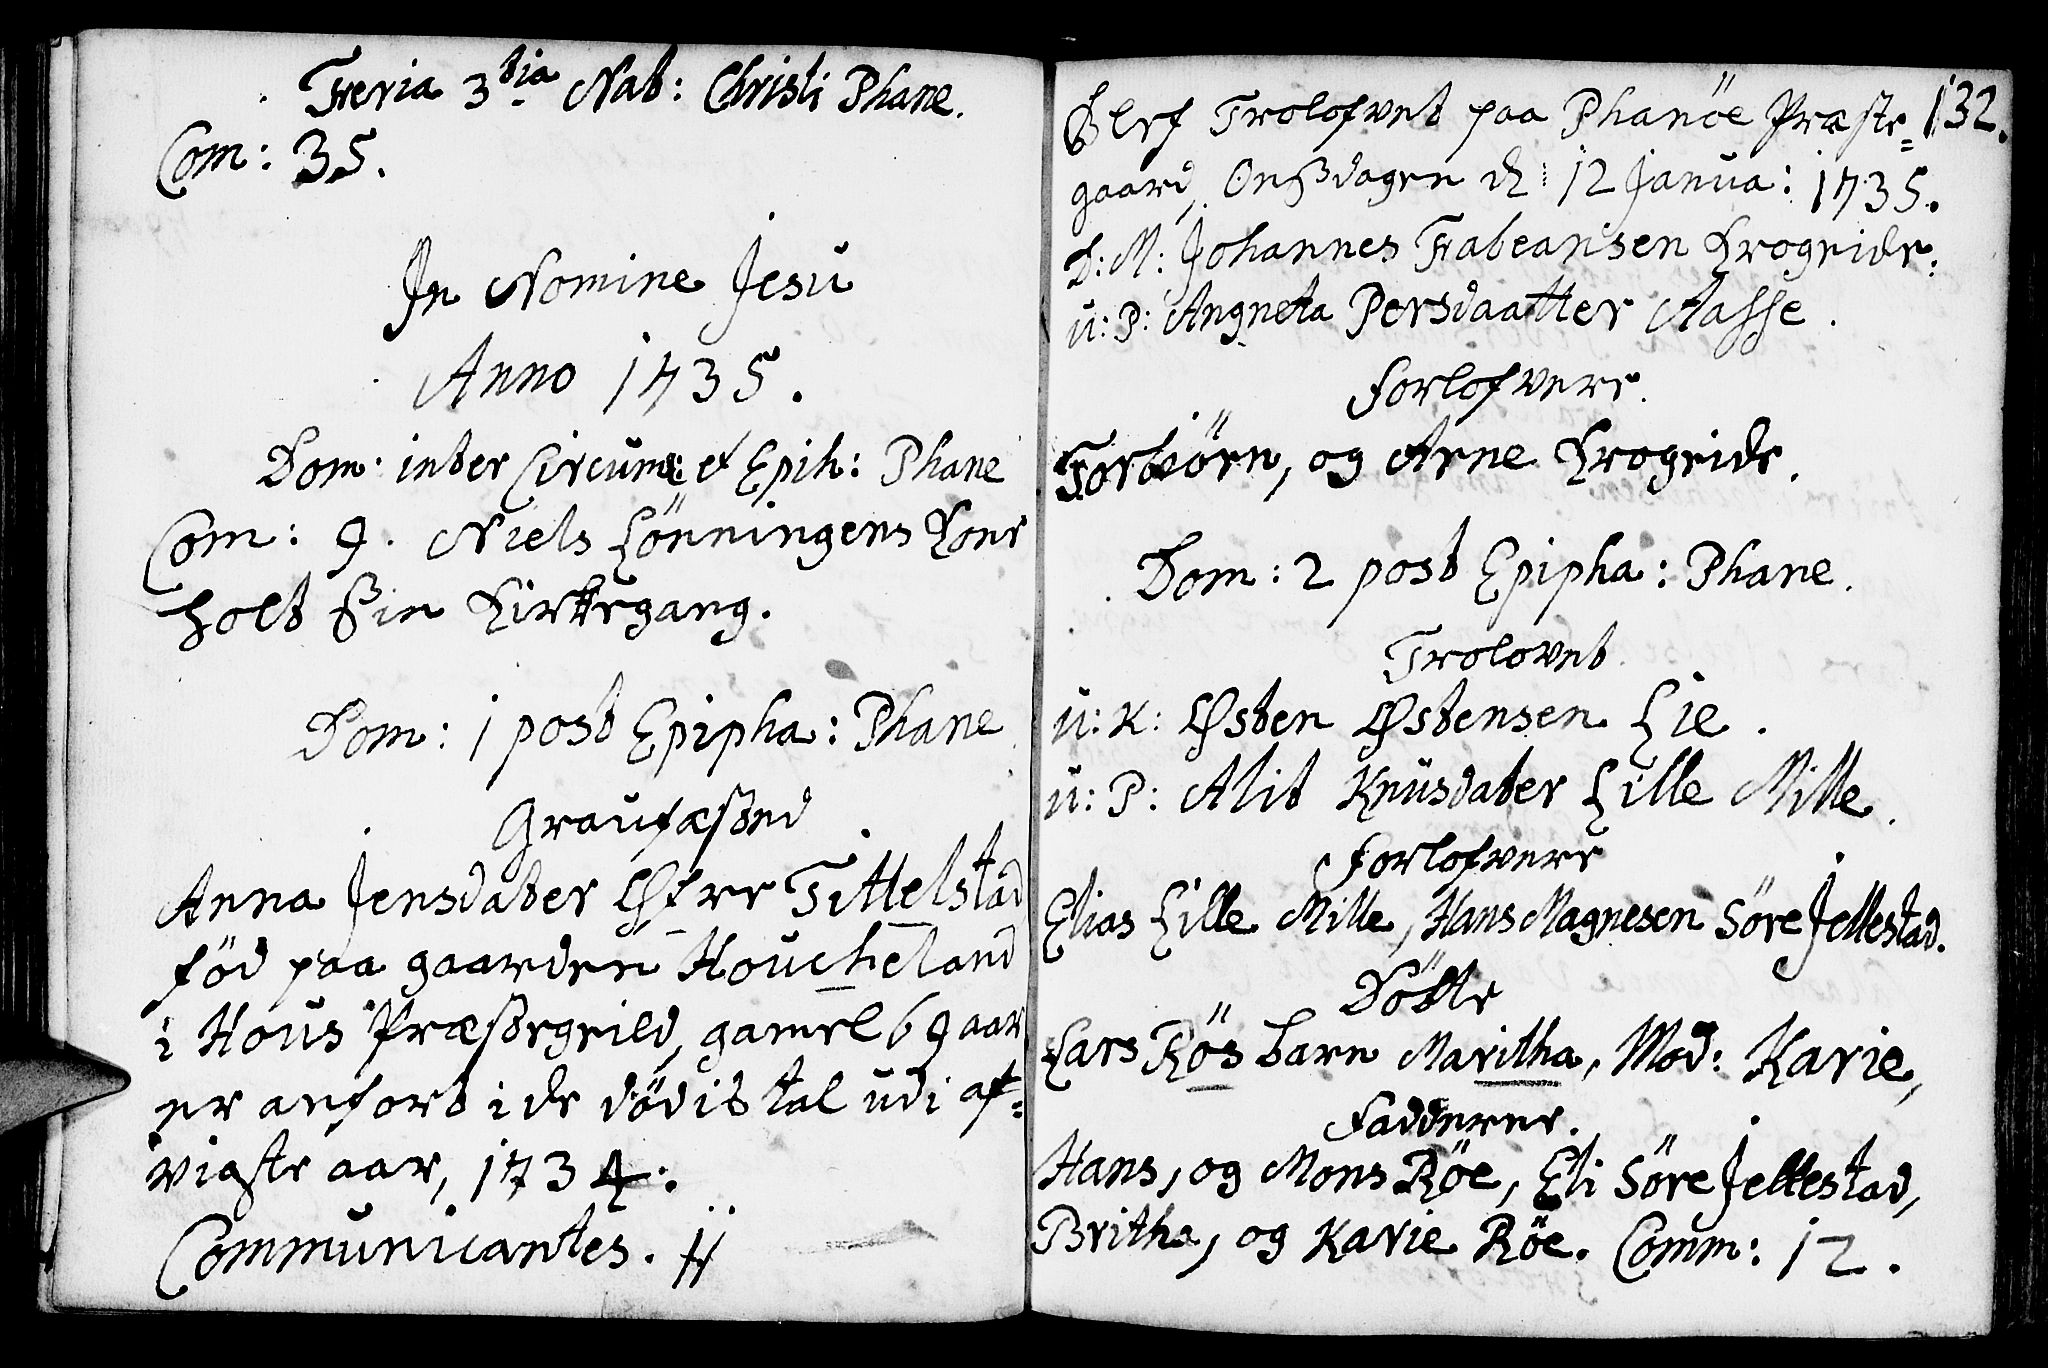 Feria 3tia Nat: Christi Phane.
Com: 35.
In Nomine Jesu
Anno 1735.
Dom: inter Circum: et Epih: Phane
Com: 9. Niels Lönningens Kone
holt sin Kirkegang.
Dom: 1 post Epipha: Phane
Graufæsted
Anna Jensdater Öfre Tittelstad
föd paa gaarden Houcheland
i Hous Præstegield, gamel 69 aar
er anfort i de dödis tal udi af=
vigste aar, 1734.
Communicantes. jj
132.
Blef Trolofvet paa Phanöe Præste=
gaard, Onssdagen d 12 Janua: 1735.
D: M: Johannes Fabeansen Krogeide.
u: P: Angneta Persdaatter Aasse.
Forlofvere.
Torbiörn, og Arne Krogeide.
Dom: 2 post Epipha: Phane.
Trolovet
u: K: Östen Östensen Lie.
u: P: Alit Knüsdater Lille Mille.
Forlofvere
Elias Lille Mille, Hans Magnesen Söre Jellestad.
Döbte
Lars Rös barn Maritha, Mod: Karie,
Fadderne.
Hans, og Mons Röe, Eli Söre Jellestad,
Britha, og Karie Röe. Comm: 12.